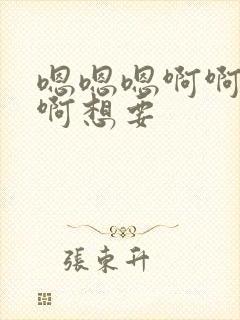 嗯嗯嗯啊啊
啊想要
張東升